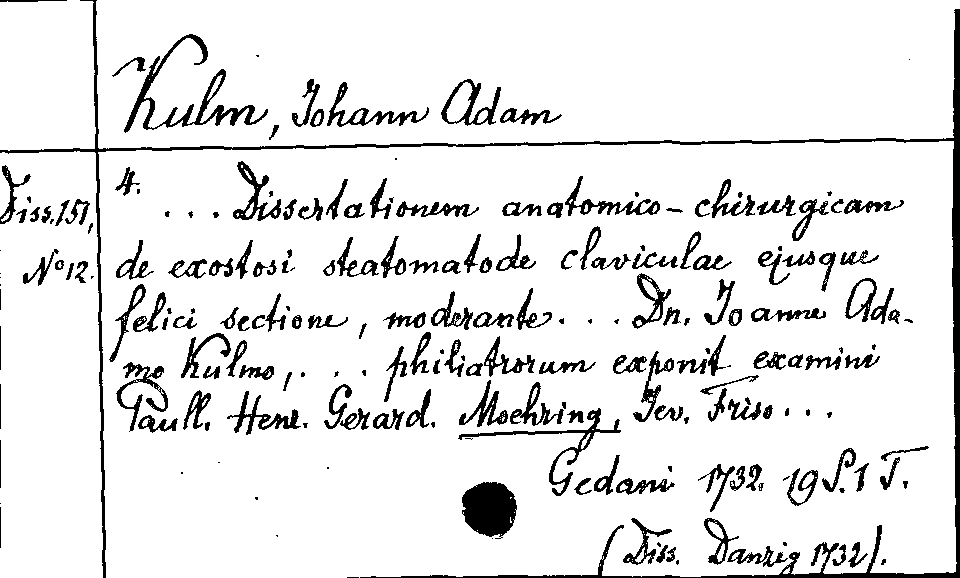 Kulm, Johann Adam
Diss. 151,
No 12.
4.
... Dissertationem anatomico-chirurgicam
de exostosi steatomatode claviculae ejusque
felici sectione, moderante... Dn. Joanne Ada-
mo Kulmo,... philiatrorum exponit examini
Paull. Henr. Gerard. Moehring, Jev. Friso...
Gedani 1732. 19 S. 1 T.
(Diss. Danzig 1732).